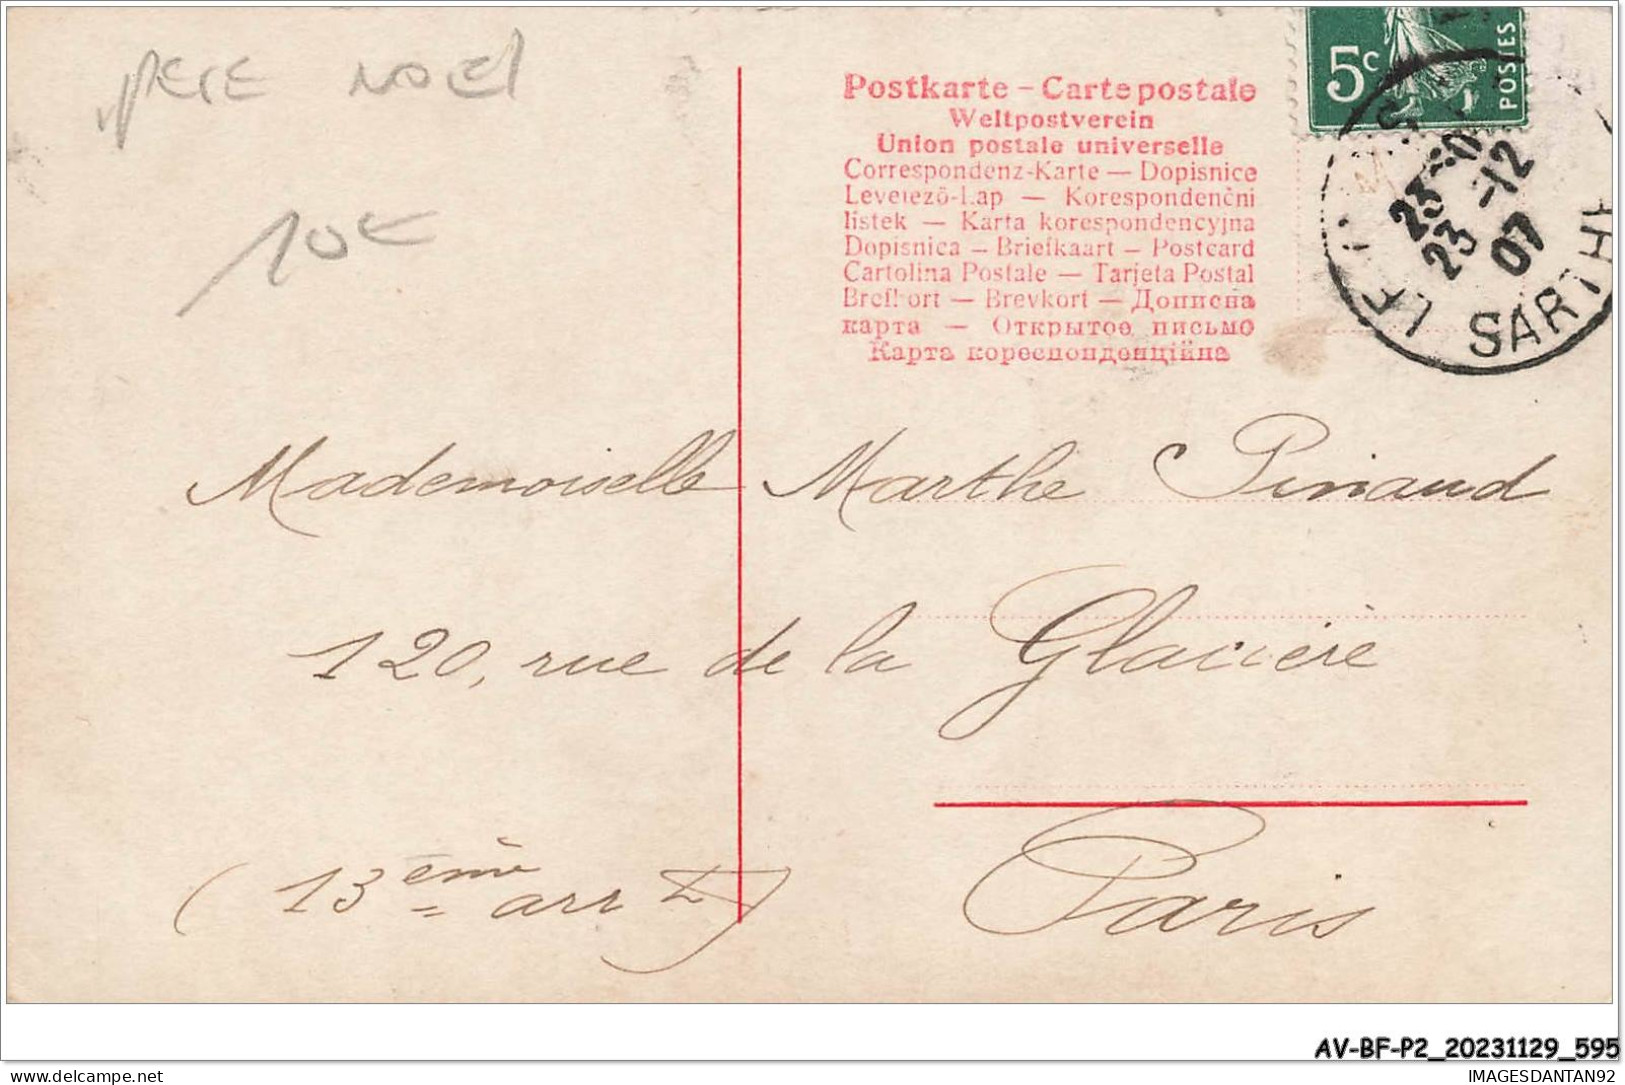 PERE NOEL
10€
5c
POSTES
Postkarte – Carte postale
Weltpostverein
Union postale universelle
Correspondenz-Karte — Dopisnice
Levelező-Lap — Korespondenční
listek — Karta korespondencyjna
Dopisnica – Briefkaart – Postcard
Cartolina Postale — Tarjeta Postal
Brefkort — Brevkort — Дописна
карта — Открытое письмо
Карта кореспонденційна
23
23 -12
07
SARTH
Mademoiselle Marthe Pinaud
120, rue de la Glacière
Paris
(13ème arrt)
AV-BF-P2_20231129_595
IMAGESDANTAN92